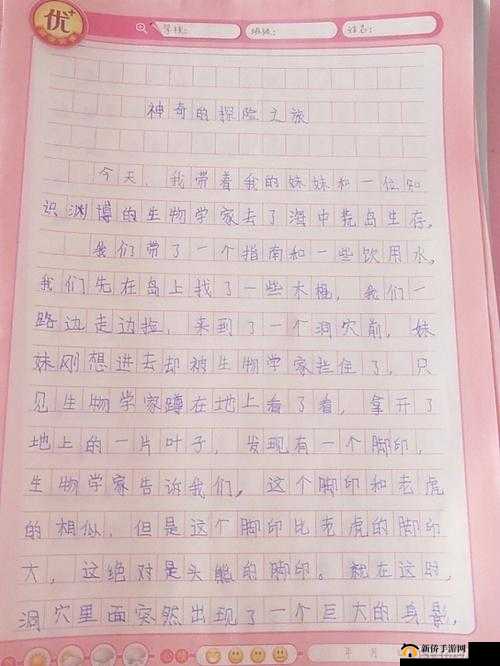 优
学校:
班级:
姓名:
神奇的探险之旅
今天，我带着我的妹妹和一位知
识渊博的生物学家去了海中荒岛生存。
我们带了一个指南和一些饮用水，
我们先在岛上找了一些木棍，我们一
路边走边捡，来到了一个洞穴前，妹
妹刚想进去却被生物学家拦住了，只
见生物学家蹲在地上看了看，拿开了
地上的一片叶子，发现有一个脚印，
生物学家告诉我们，这个脚印和老虎
的相似，但是这个脚印比老虎的脚印
大，这绝对是头熊的脚印。就在这时，
洞穴里面突然出现了一个巨大的身影，
年 月
新侨手游网